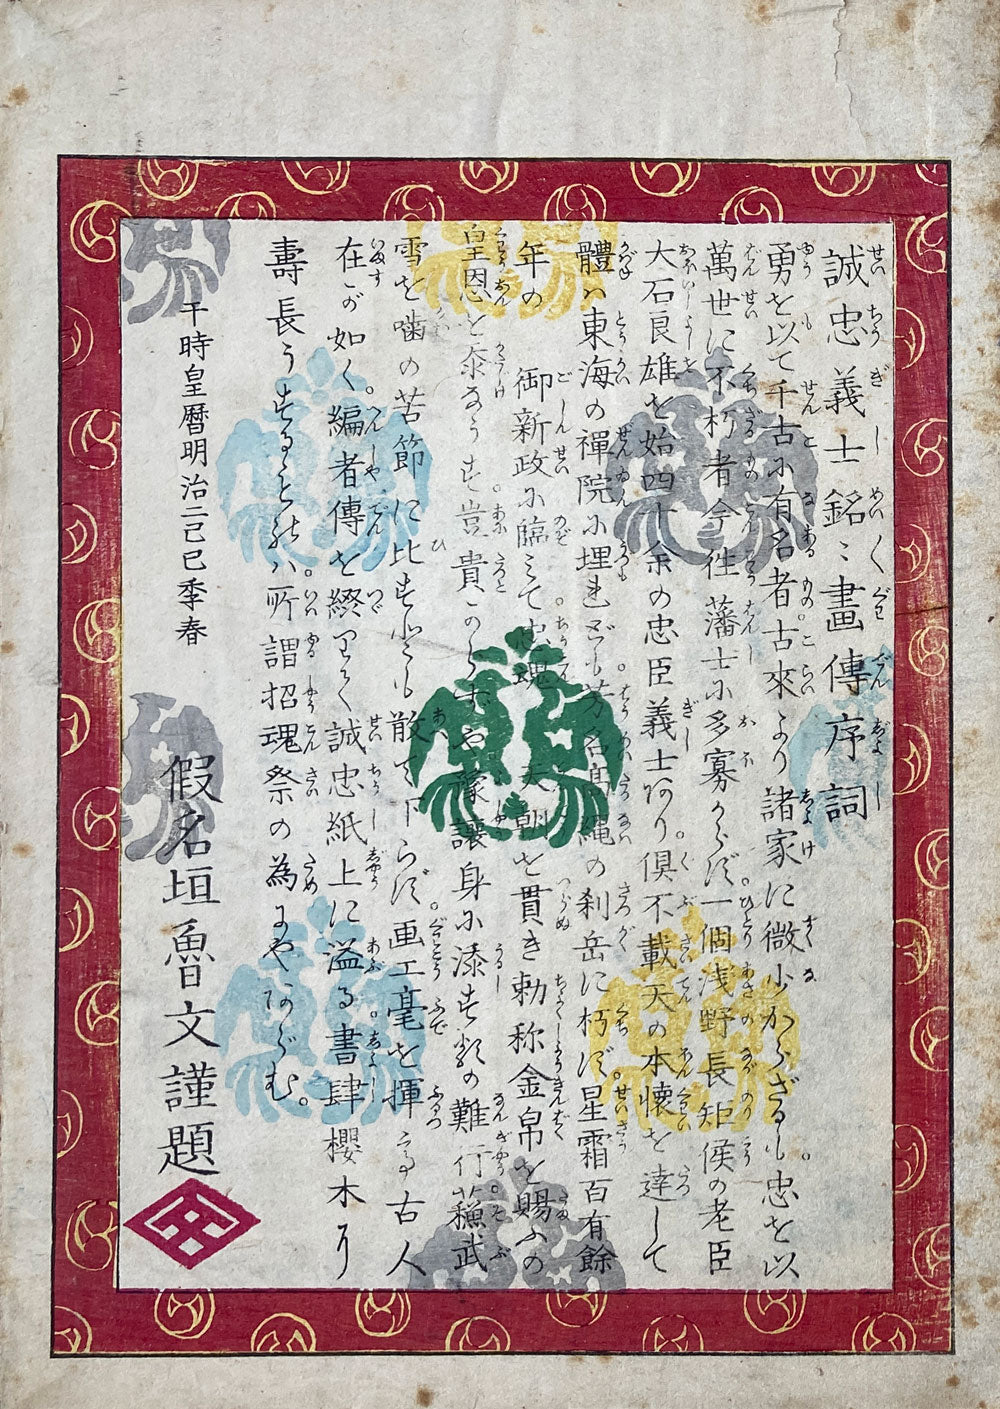 誠忠義士銘〻畫傳序詞
勇を以て千古に有名者。古來より諸家に微少からざるも。忠を以
萬世に不朽者今往藩士に多寡からず。一個浅野長矩侯の老臣
大石良雄を始四十余の忠臣義士あり。倶不載天の本懐を達して
體ハ東海の禪院に埋れども。芳名高縄の刹岳に朽ず。星霜百有餘
年の 御新政に臨ミて忠魂 天朝を貫き勅称金帛を賜ふの
皇恩を泰なうす。豈貴からずや。豫讓身に漆す類の難行。蘓武
雪を噛の苦節に比すとも散て下らず。画工毫を揮て古人
在が如く。編者傳を綴りて誠忠紙上に溢る。書肆櫻木に
壽長うすること能ハ。所謂招魂祭の為にやあらむ。
于時皇暦明治二己巳季春
假名垣魯文謹題